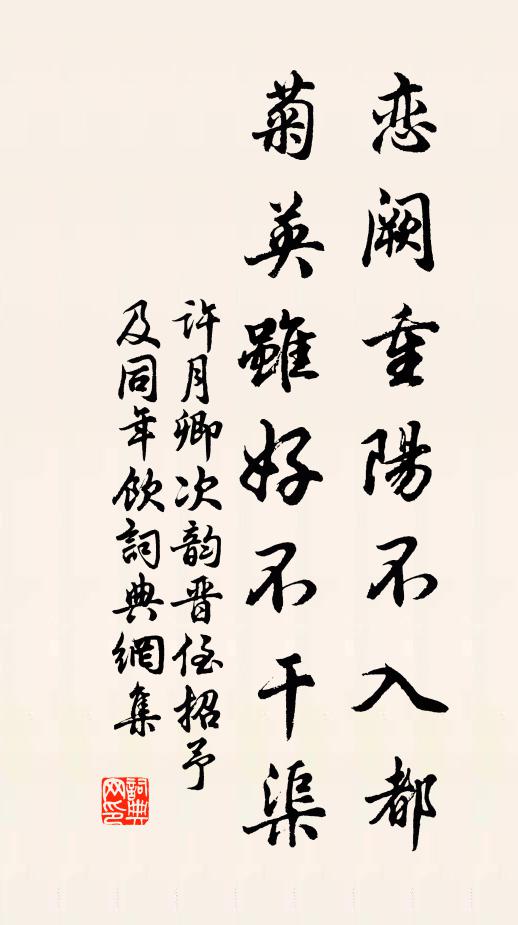 恋阙重陽不入都
菊英雖好不干渠
许月卿次韵晋侄招予
及同年飲詞典網集
詞典网印